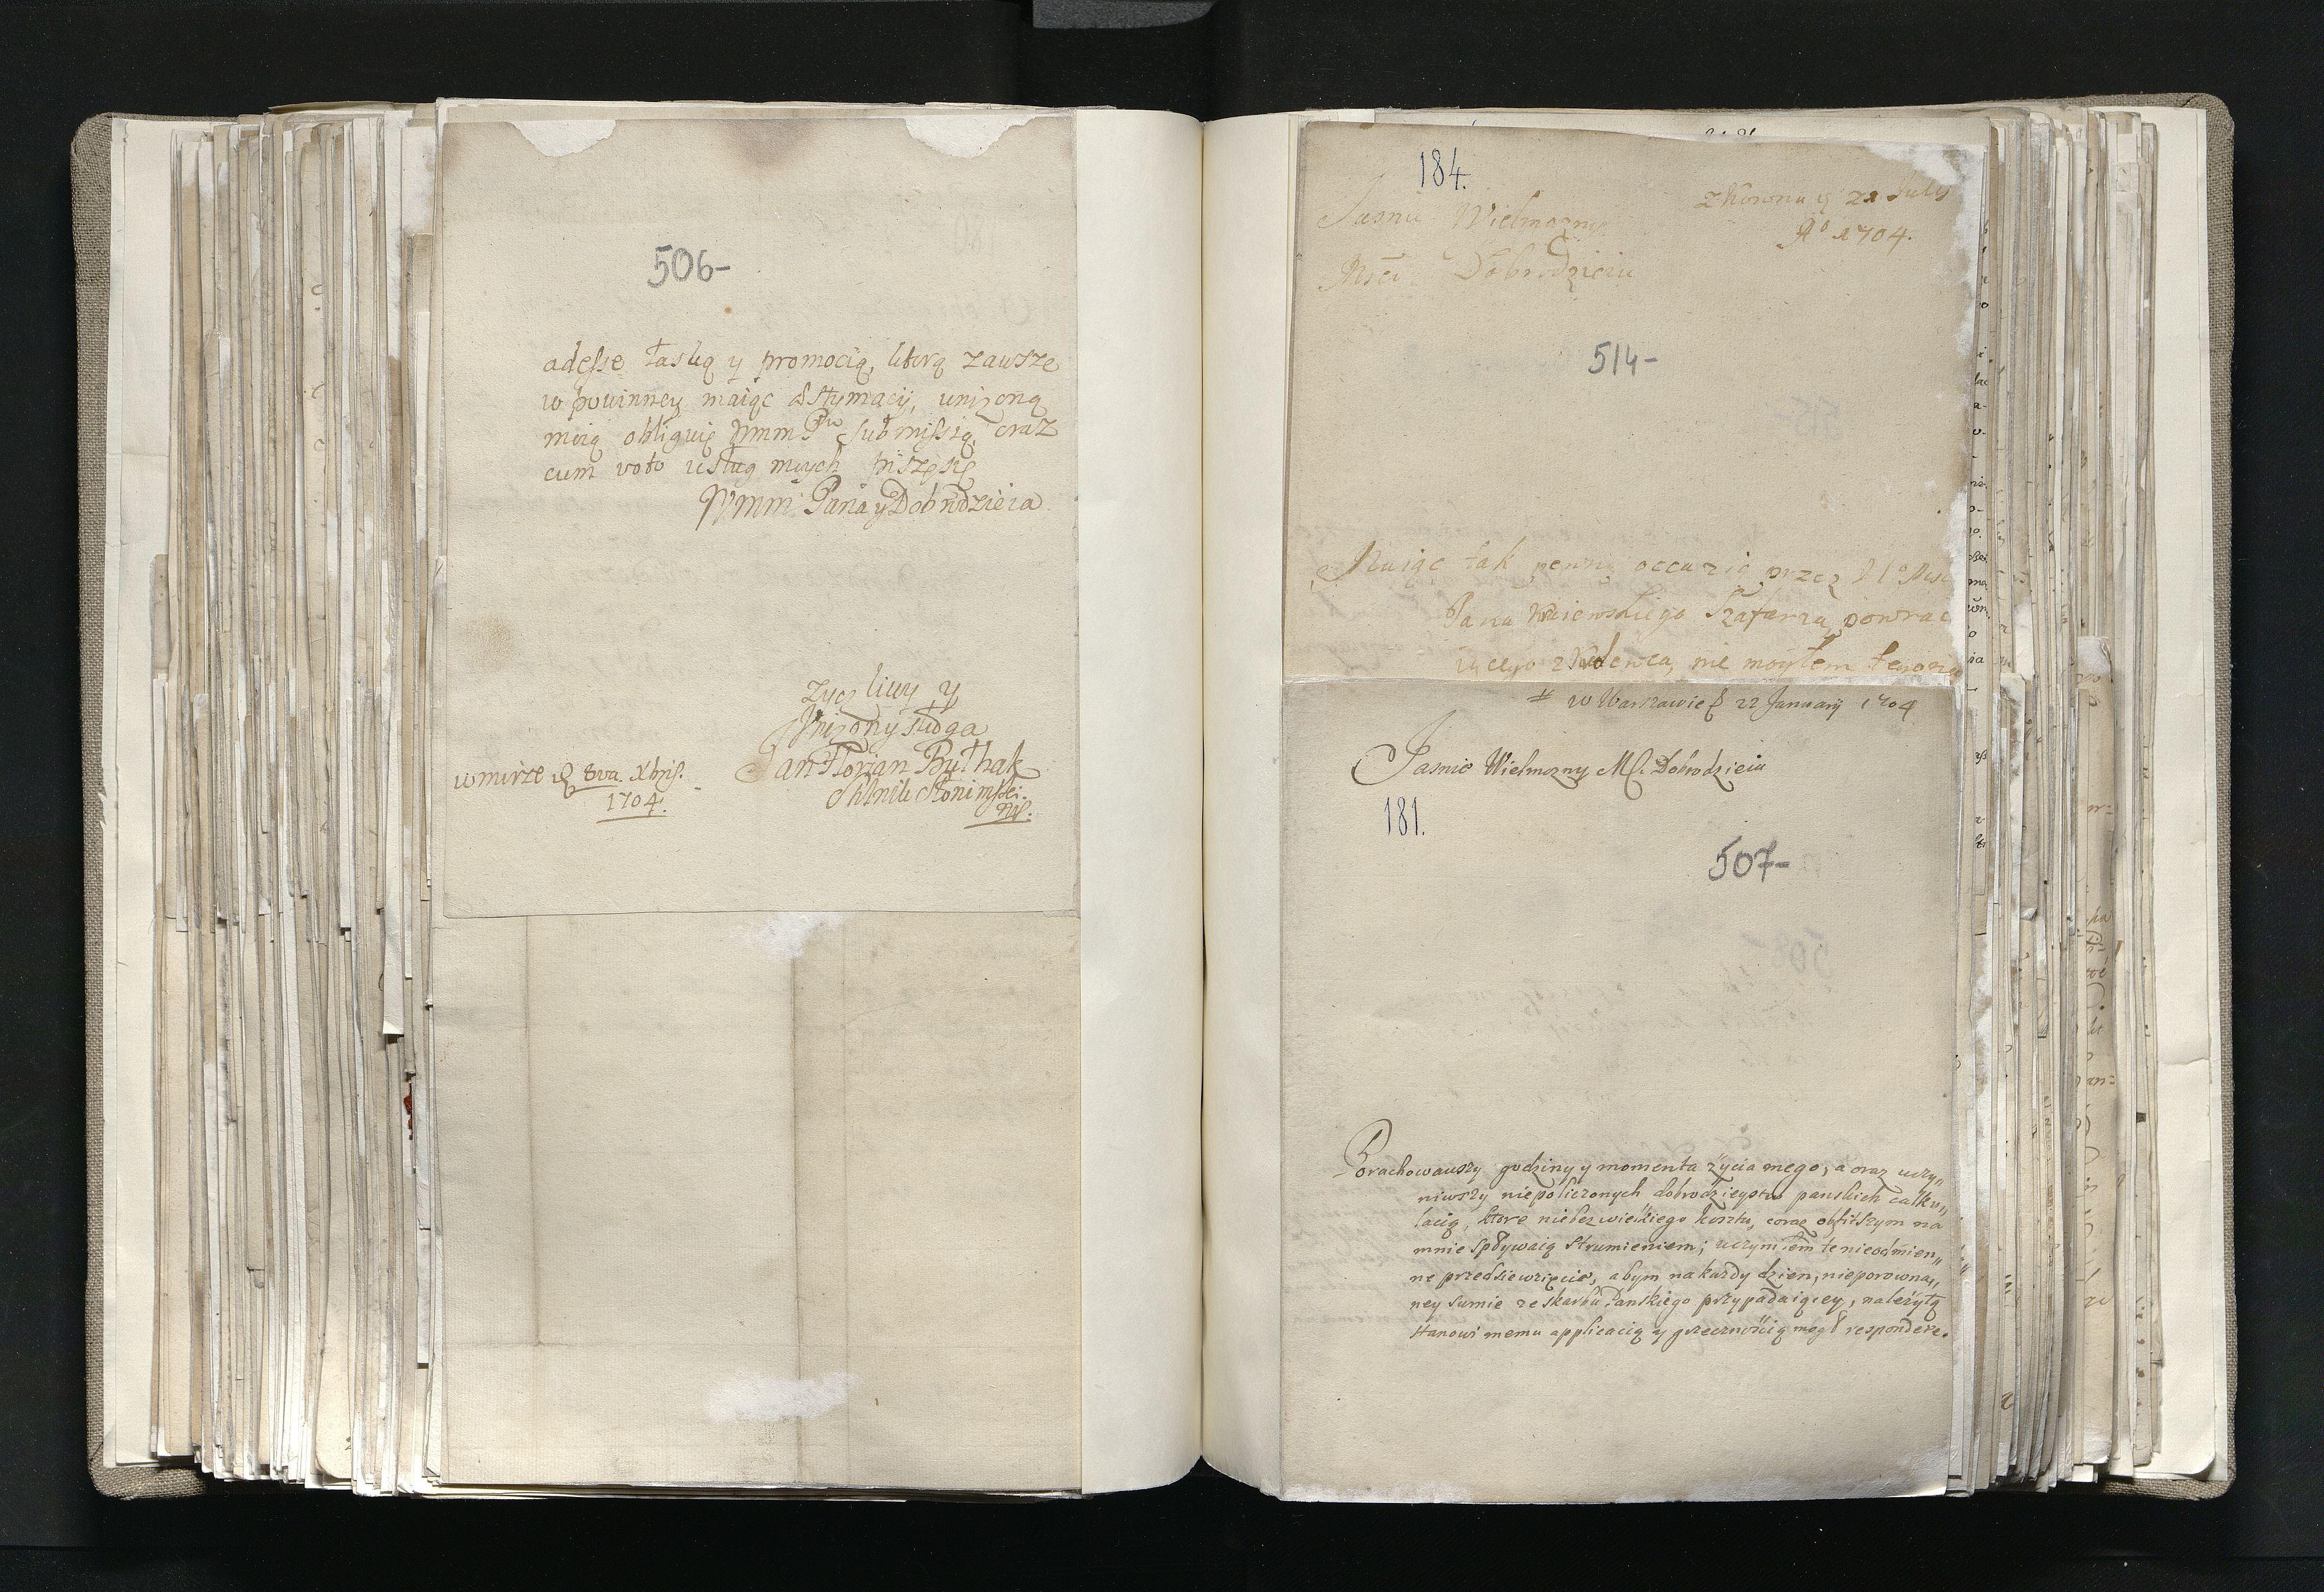 506-
adesse łaską y promocią, ktorą zawsze
w powinney maiąc æstymacij, unizoną
moią obliguię Wmm Pu submissią, oraz
cum voto usług moych piszę się
Wmm Pana y Dobrodzieia
zyczliwy y
Unizony sługa
Jan Florian Bułhak
Stolnik Słonimski
mp.
w mirze d 8va Xbris.
1704.
184.
z Kowna d 21 July
A° 1704.
Jasnie Wielmozny
Msci Dobrodzieiu
514-
Maiąc tak pewną occazią przez
Pana Szafarza powrac
iącego z nie mogłem
w Warszawie d 22 January 1704
Jasnie Wielmozny M. Dobrodzieiu
181.
507-
Porachowawszy godziny y momenta życia mego, a oraz uczy„
niwszy niepoliczonych dobrodzieystw panskich calku„
lacią, ktore niebez wielkiego kosztu, coraz obfitszym na
mnie spływaią strumieniem; uczyniłem te nieodmien„
ne przedsiewzięcie, abym na kazdy dzien, nieporowna„
ney sumie ze skarbu Panskiego przypadaiącey, należytą
stanowi memu applicacią y grzecznością mogł respondere.